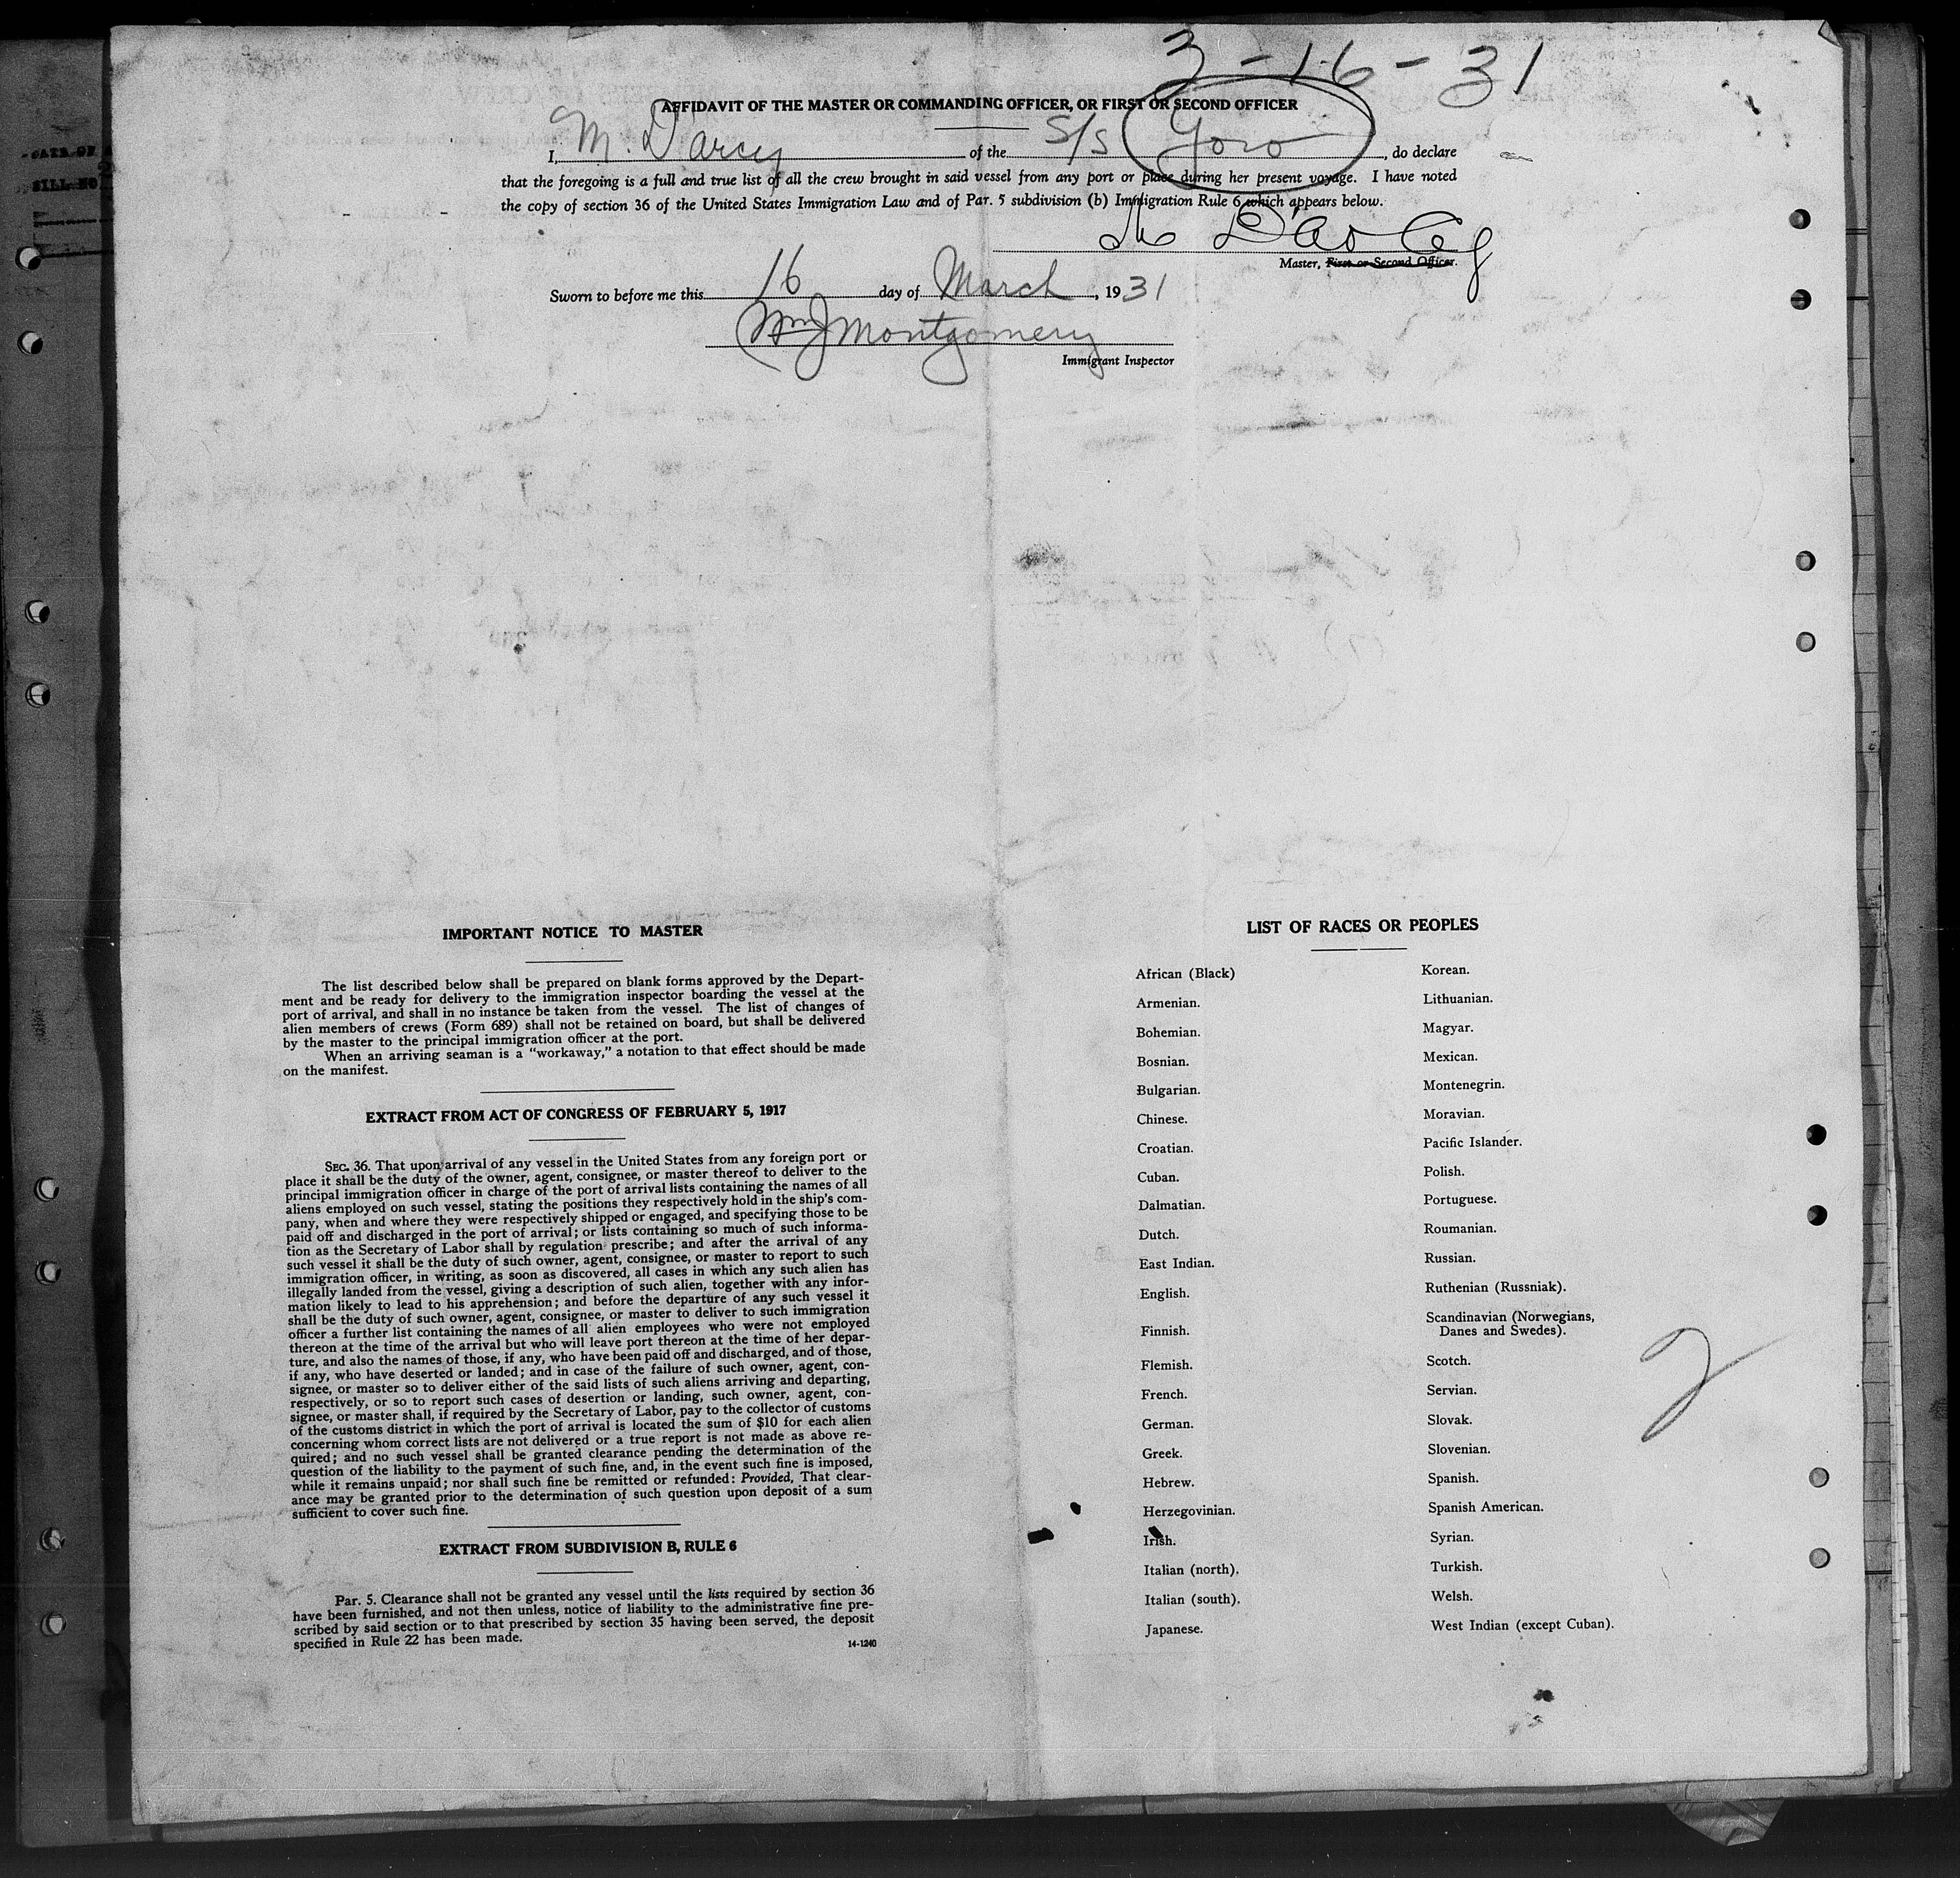 3-16-31
AFFIDAVIT OF THE MASTER OR COMMANDING OFFICER, OR FIRST OR SECOND OFFICER
I, M. D'arcy of the S/S Yoro, do declare
that the foregoing is a full and true list of all the crew brought in said vessel from any port or place during her present voyage. I have noted
the copy of section 36 of the United States Immigration Law and of Par. 5 subdivision (b) Immigration Rule 6 which appears below.
M D'arcy
Master, First or Second Officer.
Sworn to before me this 16 day of March, 1931
Wm J Montgomery
Immigrant Inspector
IMPORTANT NOTICE TO MASTER
The list described below shall be prepared on blank forms approved by the Depart-
ment and be ready for delivery to the immigration inspector boarding the vessel at the
port of arrival, and shall in no instance be taken from the vessel. The list of changes of
alien members of crews (Form 689) shall not be retained on board, but shall be delivered
by the master to the principal immigration officer at the port.
When an arriving seaman is a "workaway," a notation to that effect should be made
on the manifest.
EXTRACT FROM ACT OF CONGRESS OF FEBRUARY 5, 1917
SEC. 36. That upon arrival of any vessel in the United States from any foreign port or
place it shall be the duty of the owner, agent, consignee, or master thereof to deliver to the
principal immigration officer in charge of the port of arrival lists containing the names of all
aliens employed on such vessel, stating the positions they respectively hold in the ship's com-
pany, when and where they were respectively shipped or engaged, and specifying those to be
paid off and discharged in the port of arrival; or lists containing so much of such informa-
tion as the Secretary of Labor shall by regulation prescribe; and after the arrival of any
such vessel it shall be the duty of such owner, agent, consignee, or master to report to such
immigration officer, in writing, as soon as discovered, all cases in which any such alien has
illegally landed from the vessel, giving a description of such alien, together with any infor-
mation likely to lead to his apprehension; and before the departure of any such vessel it
shall be the duty of such owner, agent, consignee, or master to deliver to such immigration
officer a further list containing the names of all alien employees who were not employed
thereon at the time of the arrival but who will leave port thereon at the time of her depar-
ture, and also the names of those, if any, who have been paid off and discharged, and of those,
if any, who have deserted or landed; and in case of the failure of such owner, agent, con-
signee, or master so to deliver either of the said lists of such aliens arriving and departing,
respectively, or so to report such cases of desertion or landing, such owner, agent, con-
signee, or master shall, if required by the Secretary of Labor, pay to the collector of customs
of the customs district in which the port of arrival is located the sum of $10 for each alien
concerning whom correct lists are not delivered or a true report is not made as above re-
quired; and no such vessel shall be granted clearance pending the determination of the
question of the liability to the payment of such fine, and, in the event such fine is imposed,
while it remains unpaid; nor shall such fine be remitted or refunded: Provided, That clear-
ance may be granted prior to the determination of such question upon deposit of a sum
sufficient to cover such fine.
EXTRACT FROM SUBDIVISION B, RULE 6
Par. 5. Clearance shall not be granted any vessel until the lists required by section 36
have been furnished, and not then unless, notice of liability to the administrative fine pre-
scribed by said section or to that prescribed by section 35 having been served, the deposit
specified in Rule 22 has been made.
14-1240
LIST OF RACES OR PEOPLES
African (Black)
Armenian.
Bohemian.
Bosnian.
Bulgarian.
Chinese.
Croatian.
Cuban.
Dalmatian.
Dutch.
East Indian.
English.
Finnish.
Flemish.
French.
German.
Greek.
Hebrew.
Herzegovinian.
Irish.
Italian (north).
Italian (south).
Japanese.
Korean.
Lithuanian.
Magyar.
Mexican.
Montenegrin.
Moravian.
Pacific Islander.
Polish.
Portuguese.
Roumanian.
Russian.
Ruthenian (Russniak).
Scandinavian (Norwegians,
Danes and Swedes).
Scotch.
Servian.
Slovak.
Slovenian.
Spanish.
Spanish American.
Syrian.
Turkish.
Welsh.
West Indian (except Cuban).
2